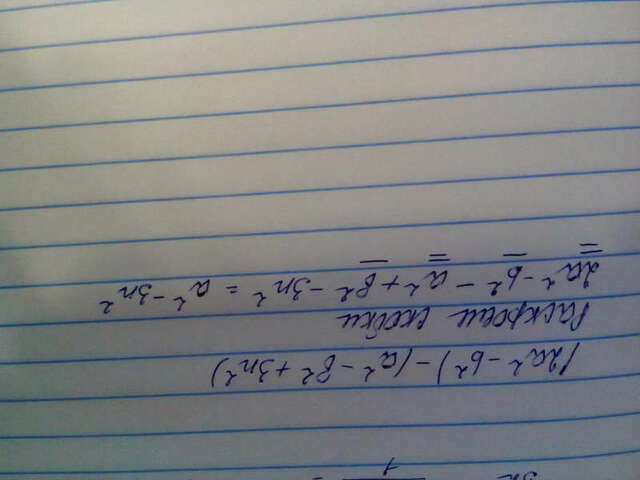 (2a² - b²) - (a² - b² + 3n²)
Раскроем скобки
2a² - b² - a² + b² - 3n² = a² - 3n²